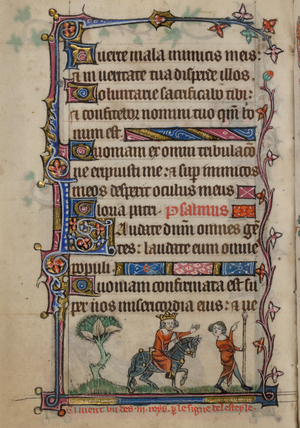 Auerte mala inimicis meis:
& in ueritate tua disperde illos.
Uoluntarie sacrificabo tibi:
& confitebor nomini tuo qm̅ bo
num est.
Quoniam ex omni tribulacōe
eripuisti me: & sup inimicos
meos desperit oculus meus
Gloria patri. Psalmus
Laudate dn̅m omnes ge
tes: laudate eum omnes
populi.
Quoniam confirmata est su
per nos misericordia eius: & ue
Ci uient un des .iii. roys p le signe del esteyle